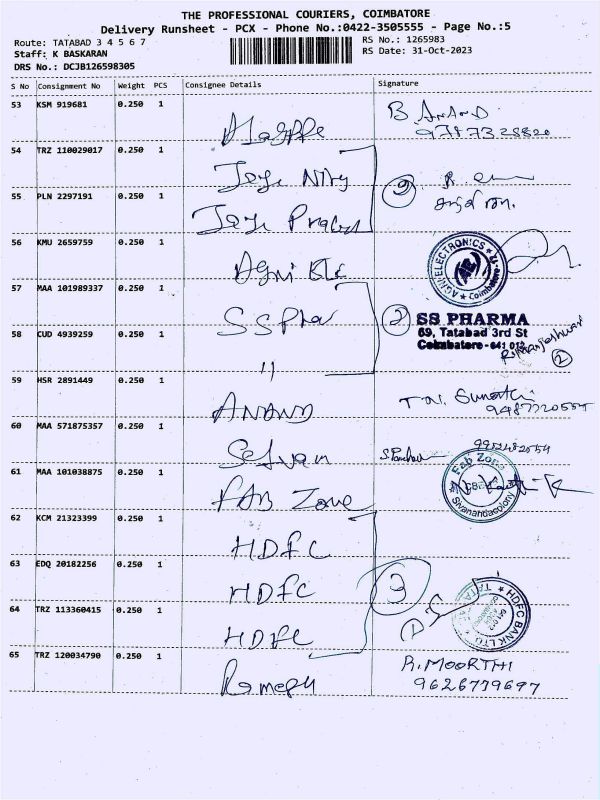 THE PROFESSIONAL COURIERS, COIMBATORE
Delivery Runsheet - PCX - Phone No.:0422-3505555 - Page No.:5
Route: TATABAD 3 4 5 6 7
RS No.: 1265983
Staff: K BASKARAN
RS Date: 31-Oct-2023
DRS No.: DCJB126598305
S No Consignment No Weight PCS Consignee Details Signature
53 KSM 919681 0.250 1
B ANAND
54 TRZ 110029017 0.250 1
55 PLN 2297191 0.250 1
56 KMU 2659759 0.250 1 Agni Ele
AGNI ELECTRONICS
Coimbatore
57 MAA 101989337 0.250 1 SS Phar
2 SS PHARMA
69, Tatabad 3rd St
Coimbatore - 641 012
58 CUD 4939259 0.250 1 11
2
59 HSR 2891449 0.250 1 ANAND
60 MAA 571875357 0.250 1 Selvan
61 MAA 101038875 0.250 1 FAB Zone
Fab Zone
Sivanandacolony
62 KCM 21323399 0.250 1 HDFC
63 EDQ 20182256 0.250 1 HDFC
3
64 TRZ 113360415 0.250 1 HDFC
HDFC BANK LTD
65 TRZ 120034790 0.250 1
R. MOORTHI
9626779697